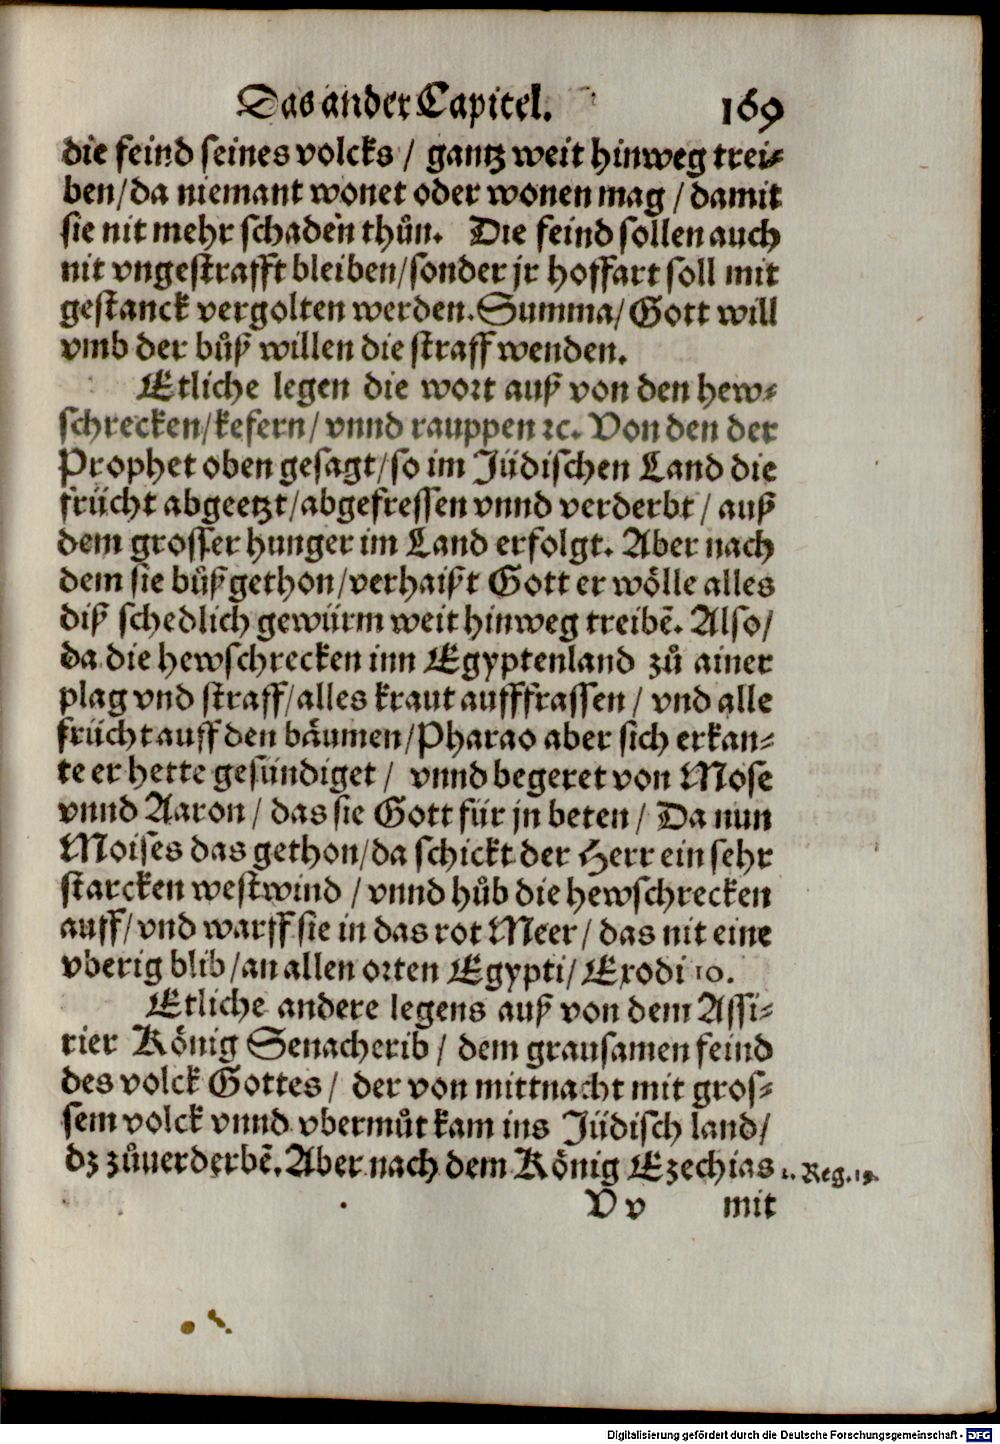 Das ander Capitel. 169
die feind seines volcks / gantz weit hinweg trei-
ben/da niemant wonet oder wonen mag / damit
sie nit mehr schaden thůn. Die feind sollen auch
nit vngestrafft bleiben/sonder jr hoffart soll mit
gestanck vergolten werden. Summa/ Gott will
vmb der bůß willen die straff wenden.
Etliche legen die wort auß von den hew-
schrecken/kefern/ vnnd rauppen ꝛc. Von den der
Prophet oben gesagt/so im Jüdischen Land die
frücht abgeetzt/abgefressen vnnd verderbt / auß
dem grosser hunger im Land erfolgt. Aber nach
dem sie bůß gethon/verhaißt Gott er wölle alles
diß schedlich gewürm weit hinweg treibē. Also/
da die hewschrecken inn Egyptenland zů ainer
plag vnd straff/alles kraut aufffrassen / vnd alle
frücht auff den bäumen/Pharao aber sich erkan-
te er hette gesündiget / vnnd begeret von Mose
vnnd Aaron / das sie Gott für jn beten / Da nun
Moises das gethon/da schickt der Herr ein sehr
starcken westwind / vnnd hůb die hewschrecken
auff/ vnd warff sie in das rot Meer / das nit eine
vberig blib/an allen orten Egypti/ Exodi 10.
Etliche andere legens auß von dem Assi-
rier König Senacherib / dem grausamen feind
des volck Gottes / der von mittnacht mit gros-
sem volck vnnd vbermůt kam ins Jüdisch land/
dz zůuerderbē. Aber nach dem König Ezechias
Reg. 19.
V v mit
Digitalisierung gefördert durch die Deutsche Forschungsgemeinschaft - DFG